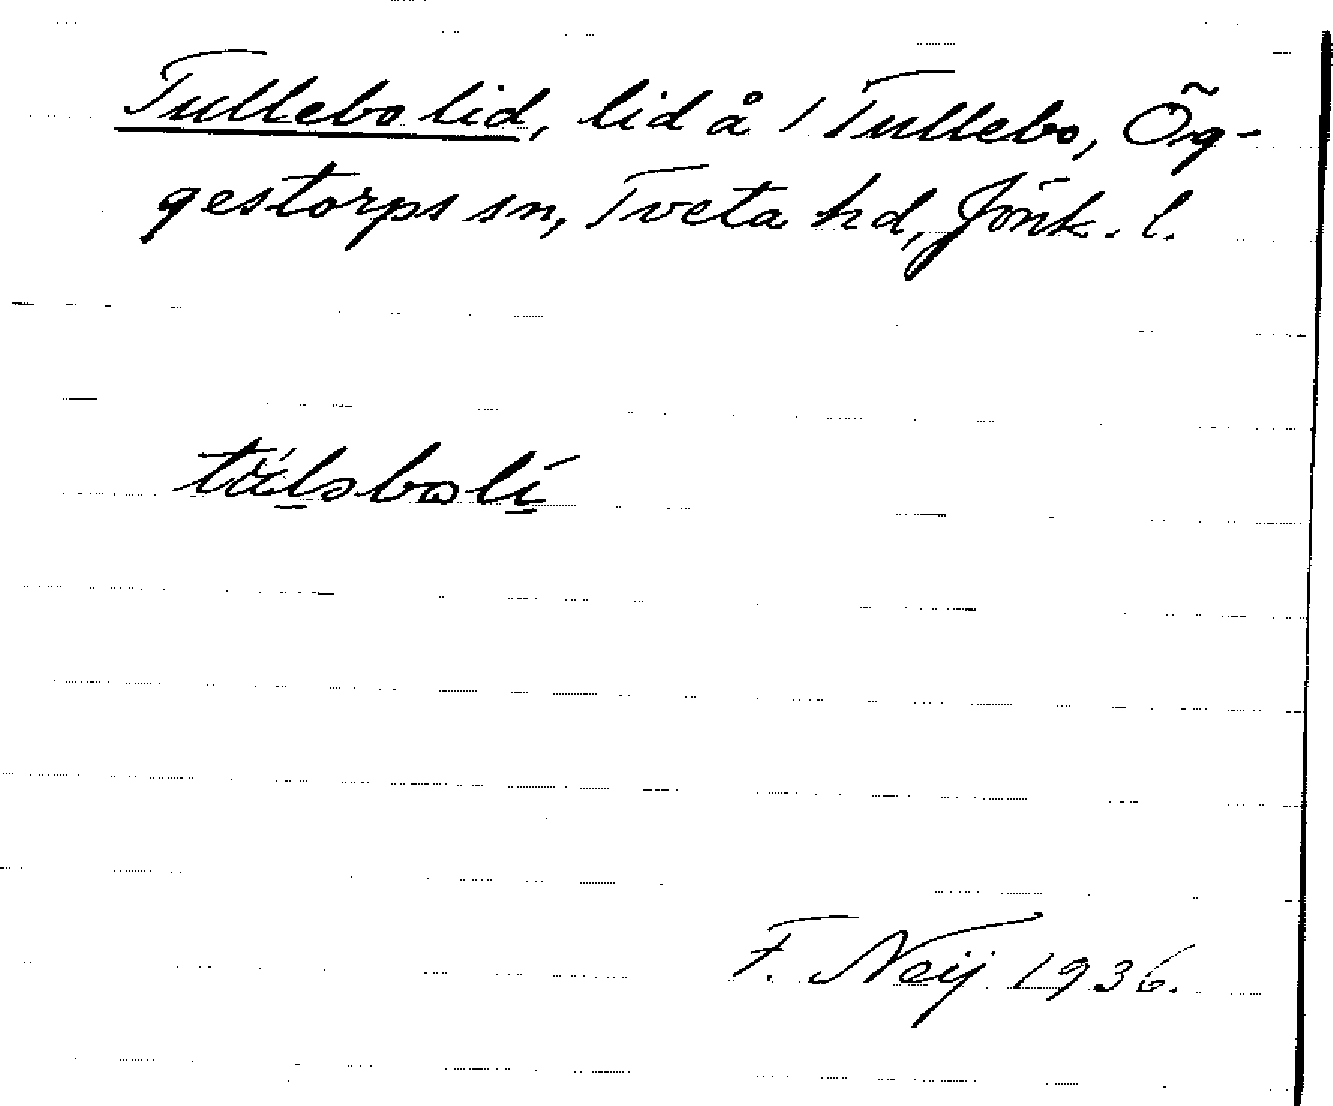 Tullebo lid, lid å 1 Tullebo, Ög-
gestorps sn, Tveta hd, Jönk. l.
F. Neij 1936.